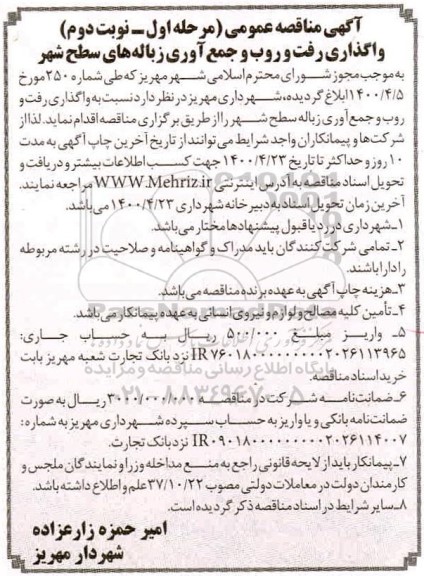 آگهی مناقصه عمومی (مرحله اول ـ نوبت دوم)
واگذاری رفت و روب و جمع آوری زباله‌های سطح شهر
به موجب مجوز شورای محترم اسلامی شهر مهریز که طی شماره ۲۵۰ مورخ
۱۴۰۰/۴/۵ ابلاغ گردیده، شهرداری مهریز در نظر دارد نسبت به واگذاری رفت و
روب و جمع آوری زباله سطح شهر را از طریق برگزاری مناقصه اقدام نماید. لذا از
شرکت‌ها و پیمانکاران واجد شرایط می‌توانند از تاریخ آخرین چاپ آگهی به مدت
۱۰ روز و حداکثر تا تاریخ ۱۴۰۰/۴/۲۳ جهت کسب اطلاعات بیشتر و دریافت و
تحویل اسناد مناقصه به آدرس اینترنتی WWW.Mehriz.ir مراجعه نمایند.
آخرین زمان تحویل اسناد به دبیرخانه شهرداری ۱۴۰۰/۴/۲۳ می‌باشد.
۱ـ شهرداری در رد یا قبول پیشنهادها مختار می‌باشد.
۲ـ تمامی شرکت کنندگان باید مدراک و گواهینامه و صلاحیت در رشته مربوطه
را دارا باشند.
۳ـ هزینه چاپ آگهی به عهده برنده مناقصه می‌باشد.
۴ـ تأمین کلیه مصالح و لوازم و نیروی انسانی به عهده پیمانکار می‌باشد.
۵ـ واریز مبلغ ۵۰۰/۰۰۰ ریال به حساب جاری:
IR۷۶۰۱۸۰۰۰۰۰۰۰۰۰۲۰۲۶۱۱۳۹۶۵ نزد بانک تجارت شعبه مهریز بابت
خرید اسناد مناقصه.
۶ـ ضمانت‌نامه شرکت در مناقصه ۳۰۰۰/۰۰۰/۰۰۰ ریال به صورت
ضمانت‌نامه بانکی و یا واریز به حساب سپرده شهرداری مهریز به شماره:
IR۰۹۰۱۸۰۰۰۰۰۰۰۰۰۲۰۲۶۱۱۴۰۰۷ نزد بانک تجارت.
۷ـ پیمانکار باید از لایحه قانونی راجع به منع مداخله وزرا و نمایندگان ملجس و
کارمندان دولت در معاملات دولتی مصوب ۳۷/۱۰/۲۲ علم و اطلاع داشته باشد.
۸ـ سایر شرایط در اسناد مناقصه ذکر گردیده است.
امیر حمزه زارعزاده
شهردار مهریز
پایگاه اطلاع رسانی مناقصه و مزایده
۰۲۱-۸۸۳۴۹۶۷۰-۵